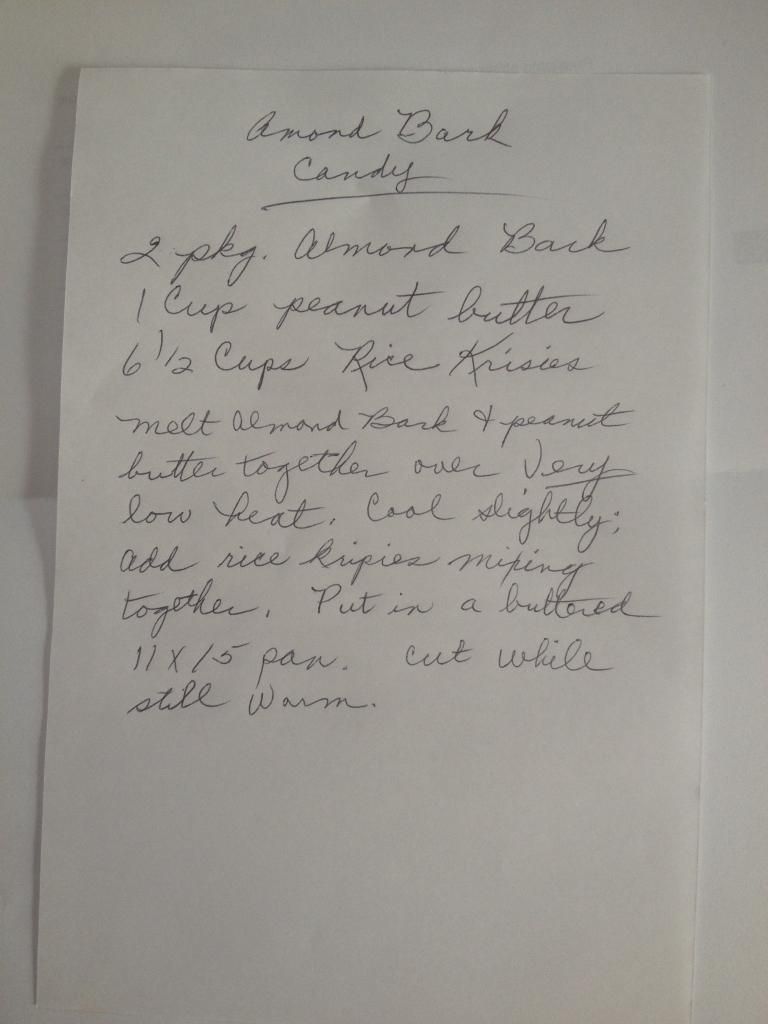 Amond Bark
Candy
2 pkg. Almond Bark
1 Cup peanut butter
6 1/2 Cups Rice Krisies
Melt Almond Bark & peanut
butter together over Very
low heat. Cool slightly;
add rice kripies mixing
together. Put in a buttered
11 X 15 pan. Cut while
still warm.